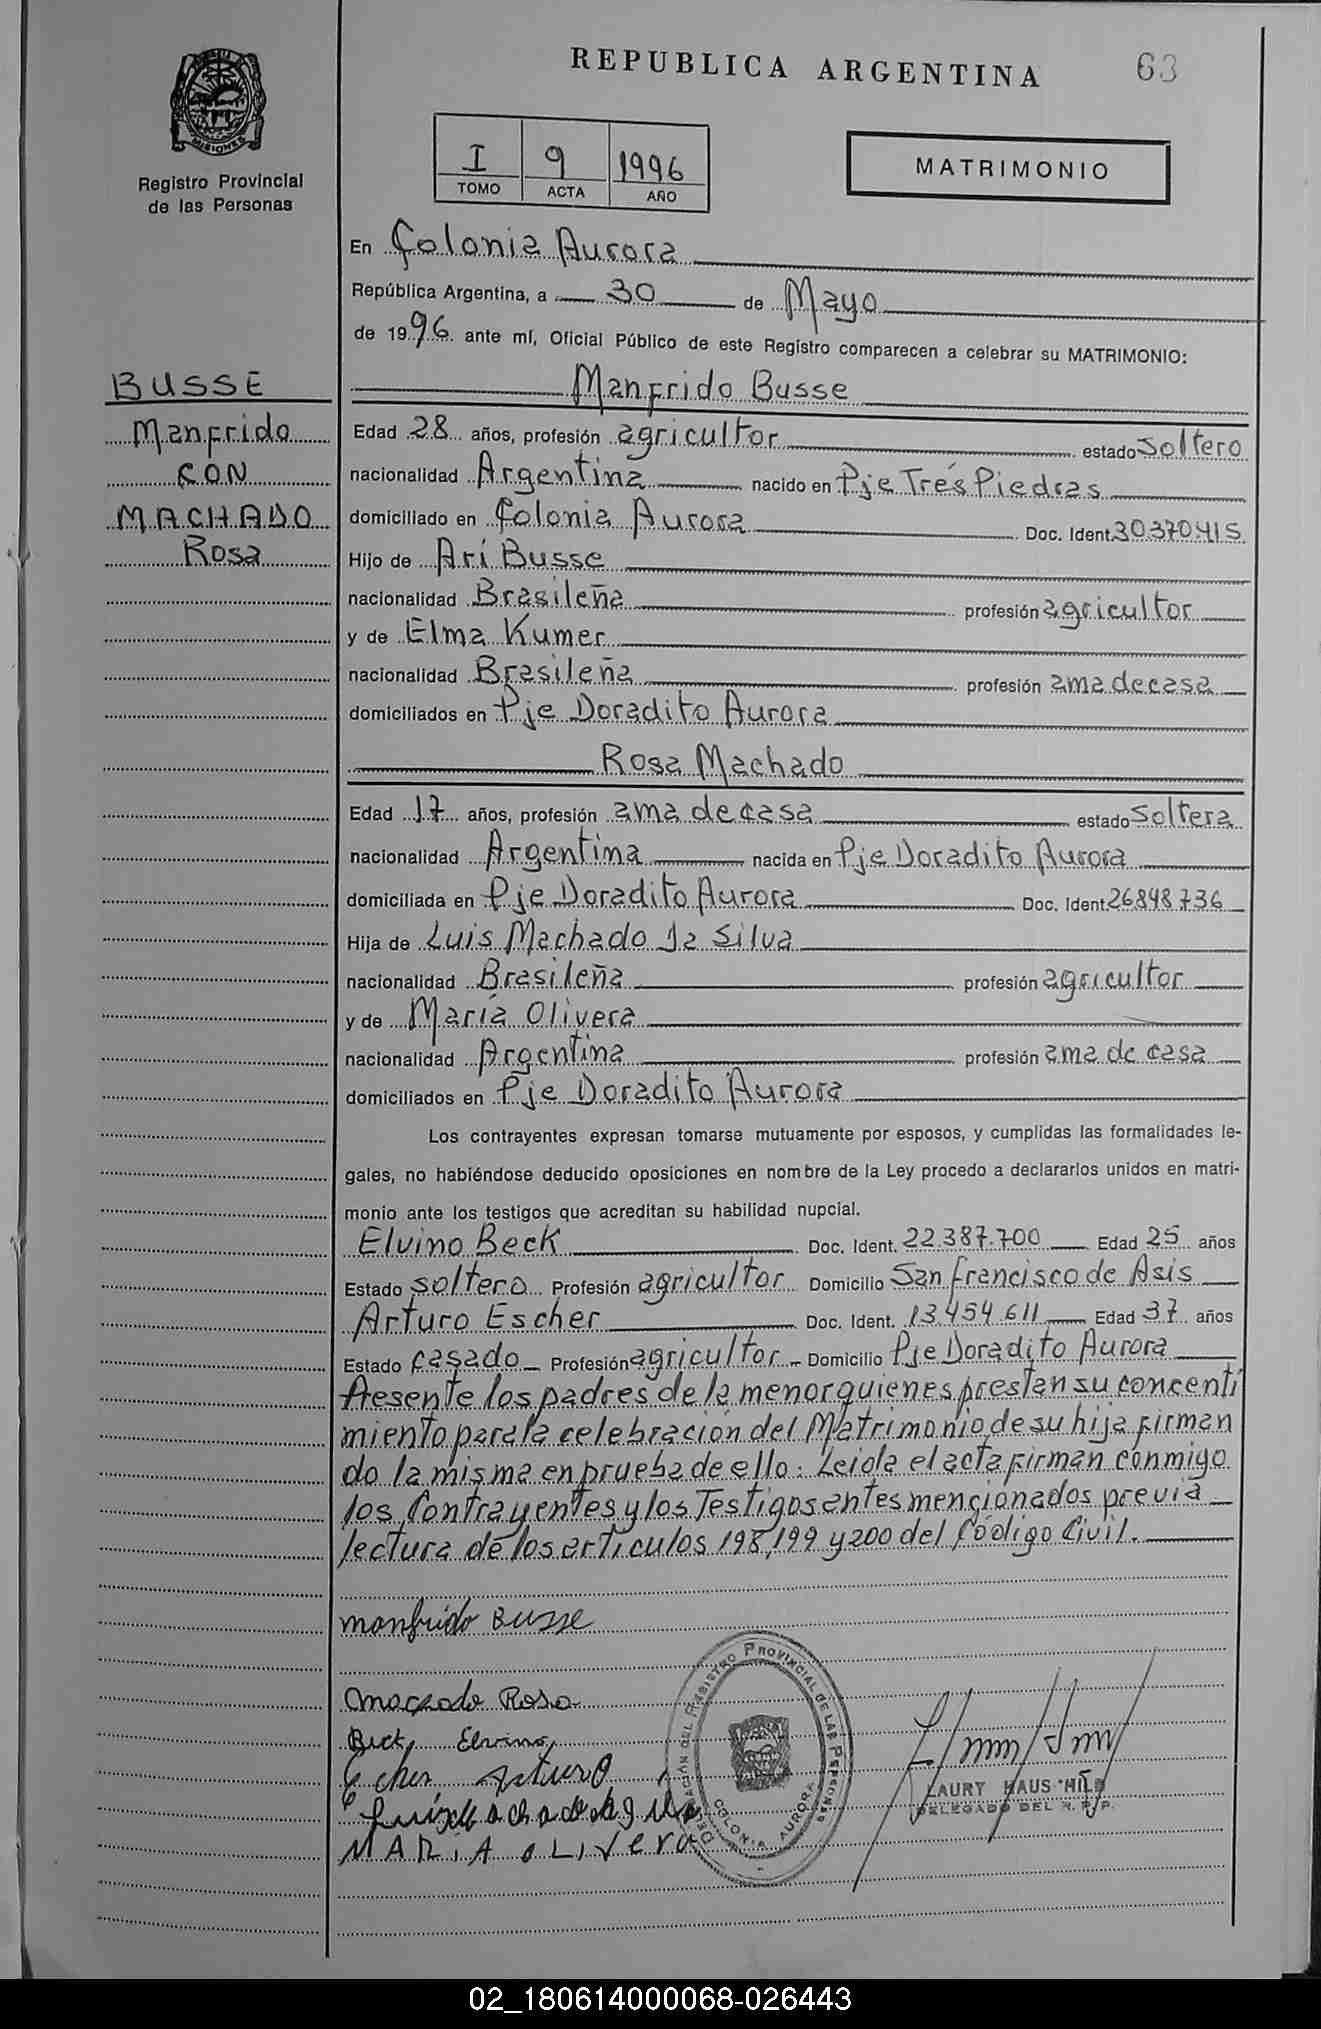 REPUBLICA ARGENTINA
63
MISIONES
Registro Provincial
de las Personas
I 9 1996
TOMO ACTA AÑO
MATRIMONIO
En Colonia Aurora
República Argentina, a 30 de Mayo
de 1996 ante mí, Oficial Público de este Registro comparecen a celebrar su MATRIMONIO:
BUSSE
Manfrido
CON
MACHADO
Rosa
Manfrido Busse
Edad 28 años, profesión agricultor estado soltero
nacionalidad Argentina nacido en Pje Trés Piedras
domiciliado en Colonia Aurora Doc. Ident. 30.370.415
Hijo de Arí Busse
nacionalidad Brasileña profesión agricultor
y de Elma Kumer
nacionalidad Brasileña profesión ama de casa
domiciliados en Pje Doradito Aurora
Rosa Machado
Edad 17 años, profesión ama de casa estado soltera
nacionalidad Argentina nacida en Pje Doradito Aurora
domiciliada en Pje Doradito Aurora Doc. Ident. 26.848.736
Hija de Luis Machado Da Silva
nacionalidad Brasileña profesión agricultor
y de María Olivera
nacionalidad Argentina profesión ama de casa
domiciliados en Pje Doradito Aurora
Los contrayentes expresan tomarse mutuamente por esposos, y cumplidas las formalidades le-
gales, no habiéndose deducido oposiciones en nombre de la Ley procedo a declararlos unidos en matri-
monio ante los testigos que acreditan su habilidad nupcial.
Elvino Beck Doc. Ident. 22.387.700 Edad 25 años
Estado soltero Profesión agricultor Domicilio San Francisco de Asis
Arturo Escher Doc. Ident. 13.454.611 Edad 37 años
Estado casado Profesión agricultor Domicilio Pje Doradito Aurora
Presente los padres de la menor quienes prestan su concenti
miento para la celebración del Matrimonio de su hija firman
do la misma en prueba de ello: Leida el acta firman conmigo
los Contrayentes y los Testigos antes mencionados previa
lectura de los articulos 198, 199 y 200 del Código Civil.
manfrido Busse
machado Rosa
Beck Elvino
Echer Arturo
Luis Machado da Silva
MARiA OLIVera
DELEGACION DEL REGISTRO PROVINCIAL DE LAS PERSONAS
COLONIA AURORA
LAURY HAUS HILD
DELEGADO DEL R. P. P.
02_180614000068-026443